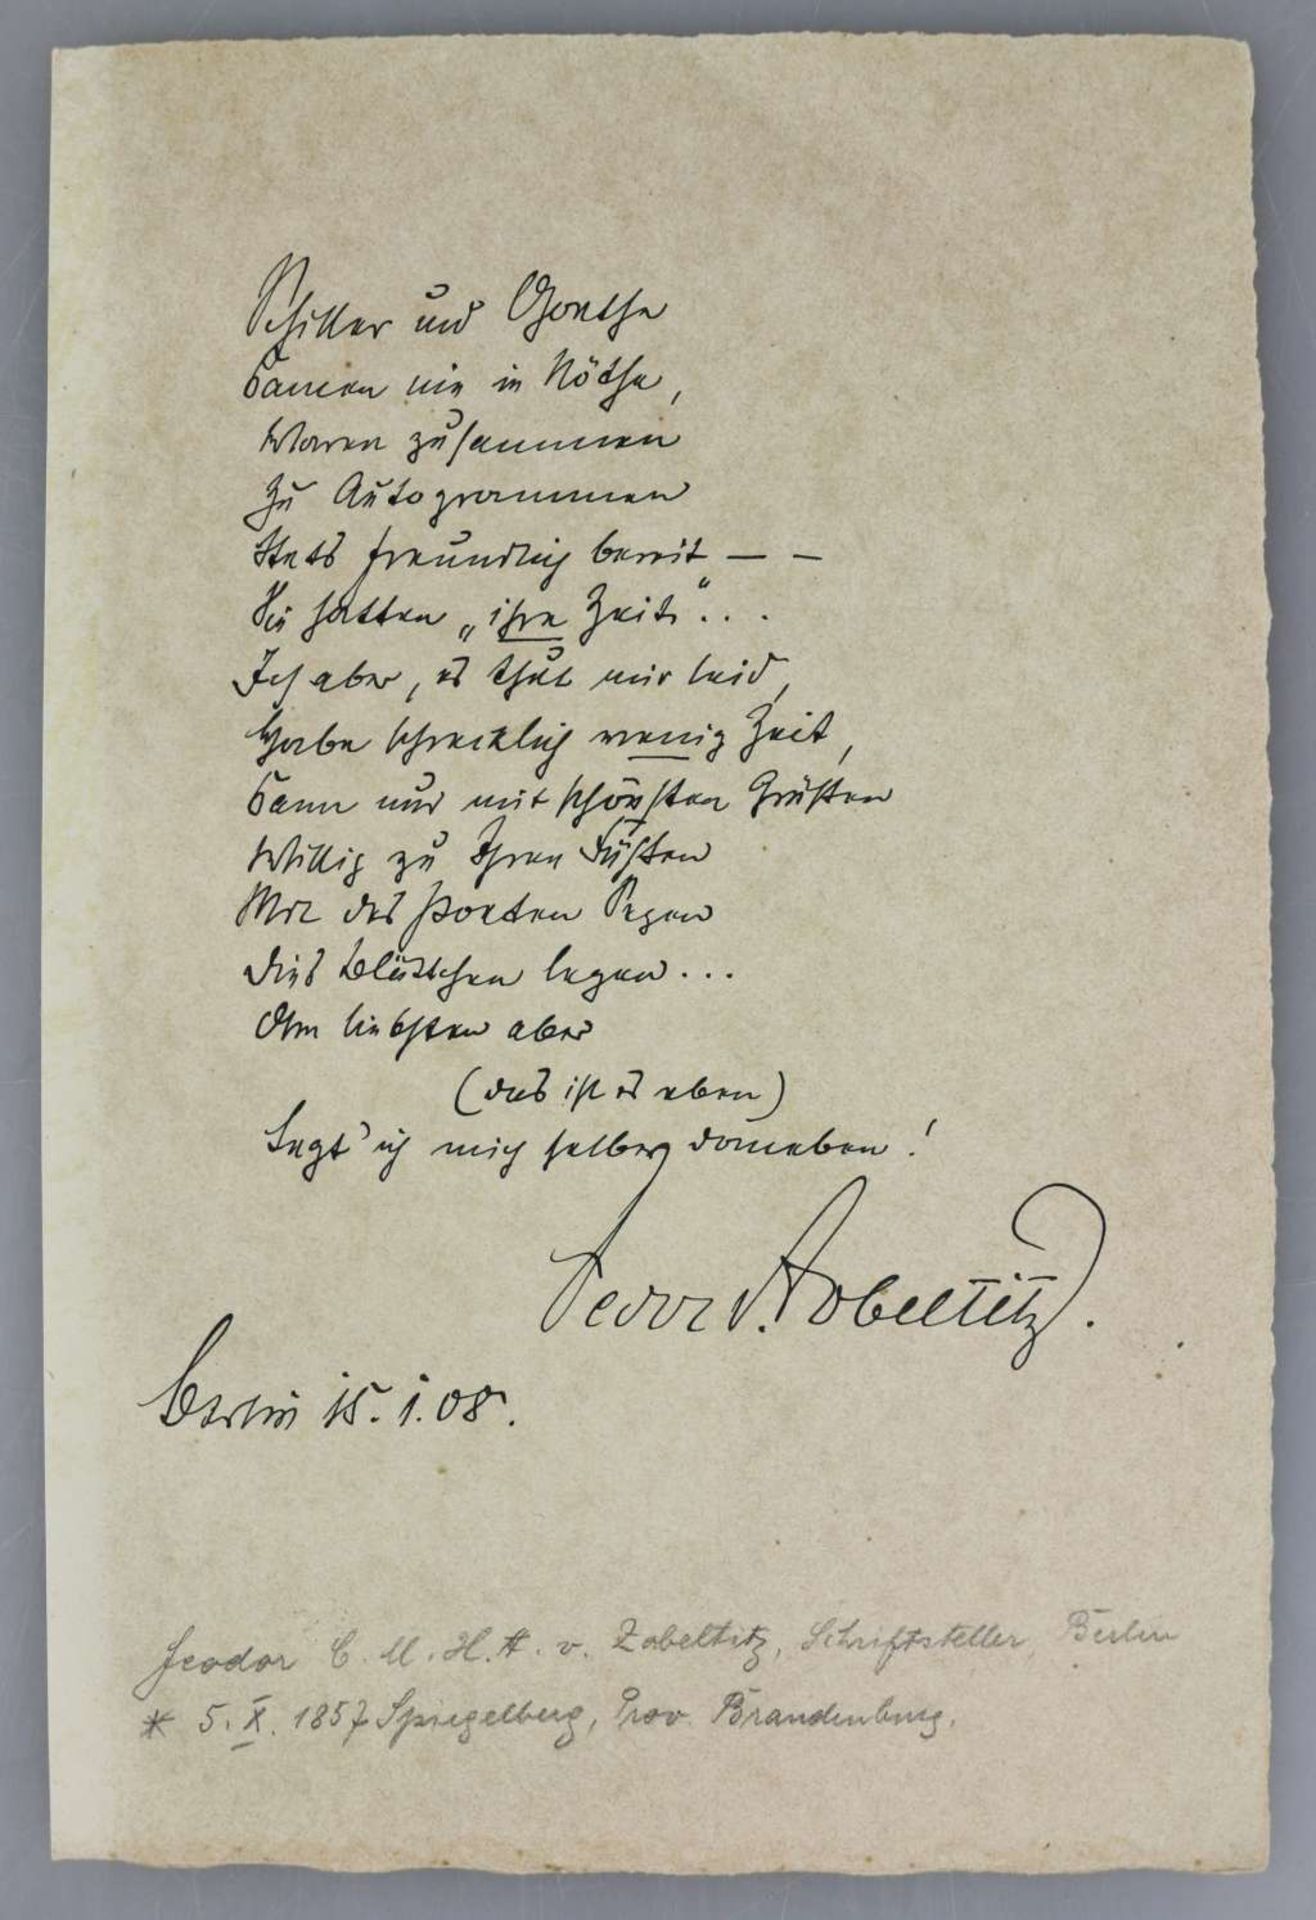 Schiller und Goethe
Kamen nie in Nöthe,
Waren zusammen
Zu Autogrammen
Stets freundlich bereit — —
Sie hatten „ihre Zeit“...
Ich aber, es thut mir leid,
Habe schrecklich wenig Zeit,
Kann nur mit schönsten Grüßen
Willig zu Ihren Füßen
Mit des Poeten Segen
Dies Blättchen legen...
Am liebsten aber
(das ist es eben)
Legt' ich mich selber daneben!
Fedor v. Zobeltitz.
Berlin 15.1.08.
Feodor C. M. H. A. v. Zobeltitz, Schriftsteller, Berlin
* 5. X. 1857 Spiegelberg, Prov. Brandenburg.